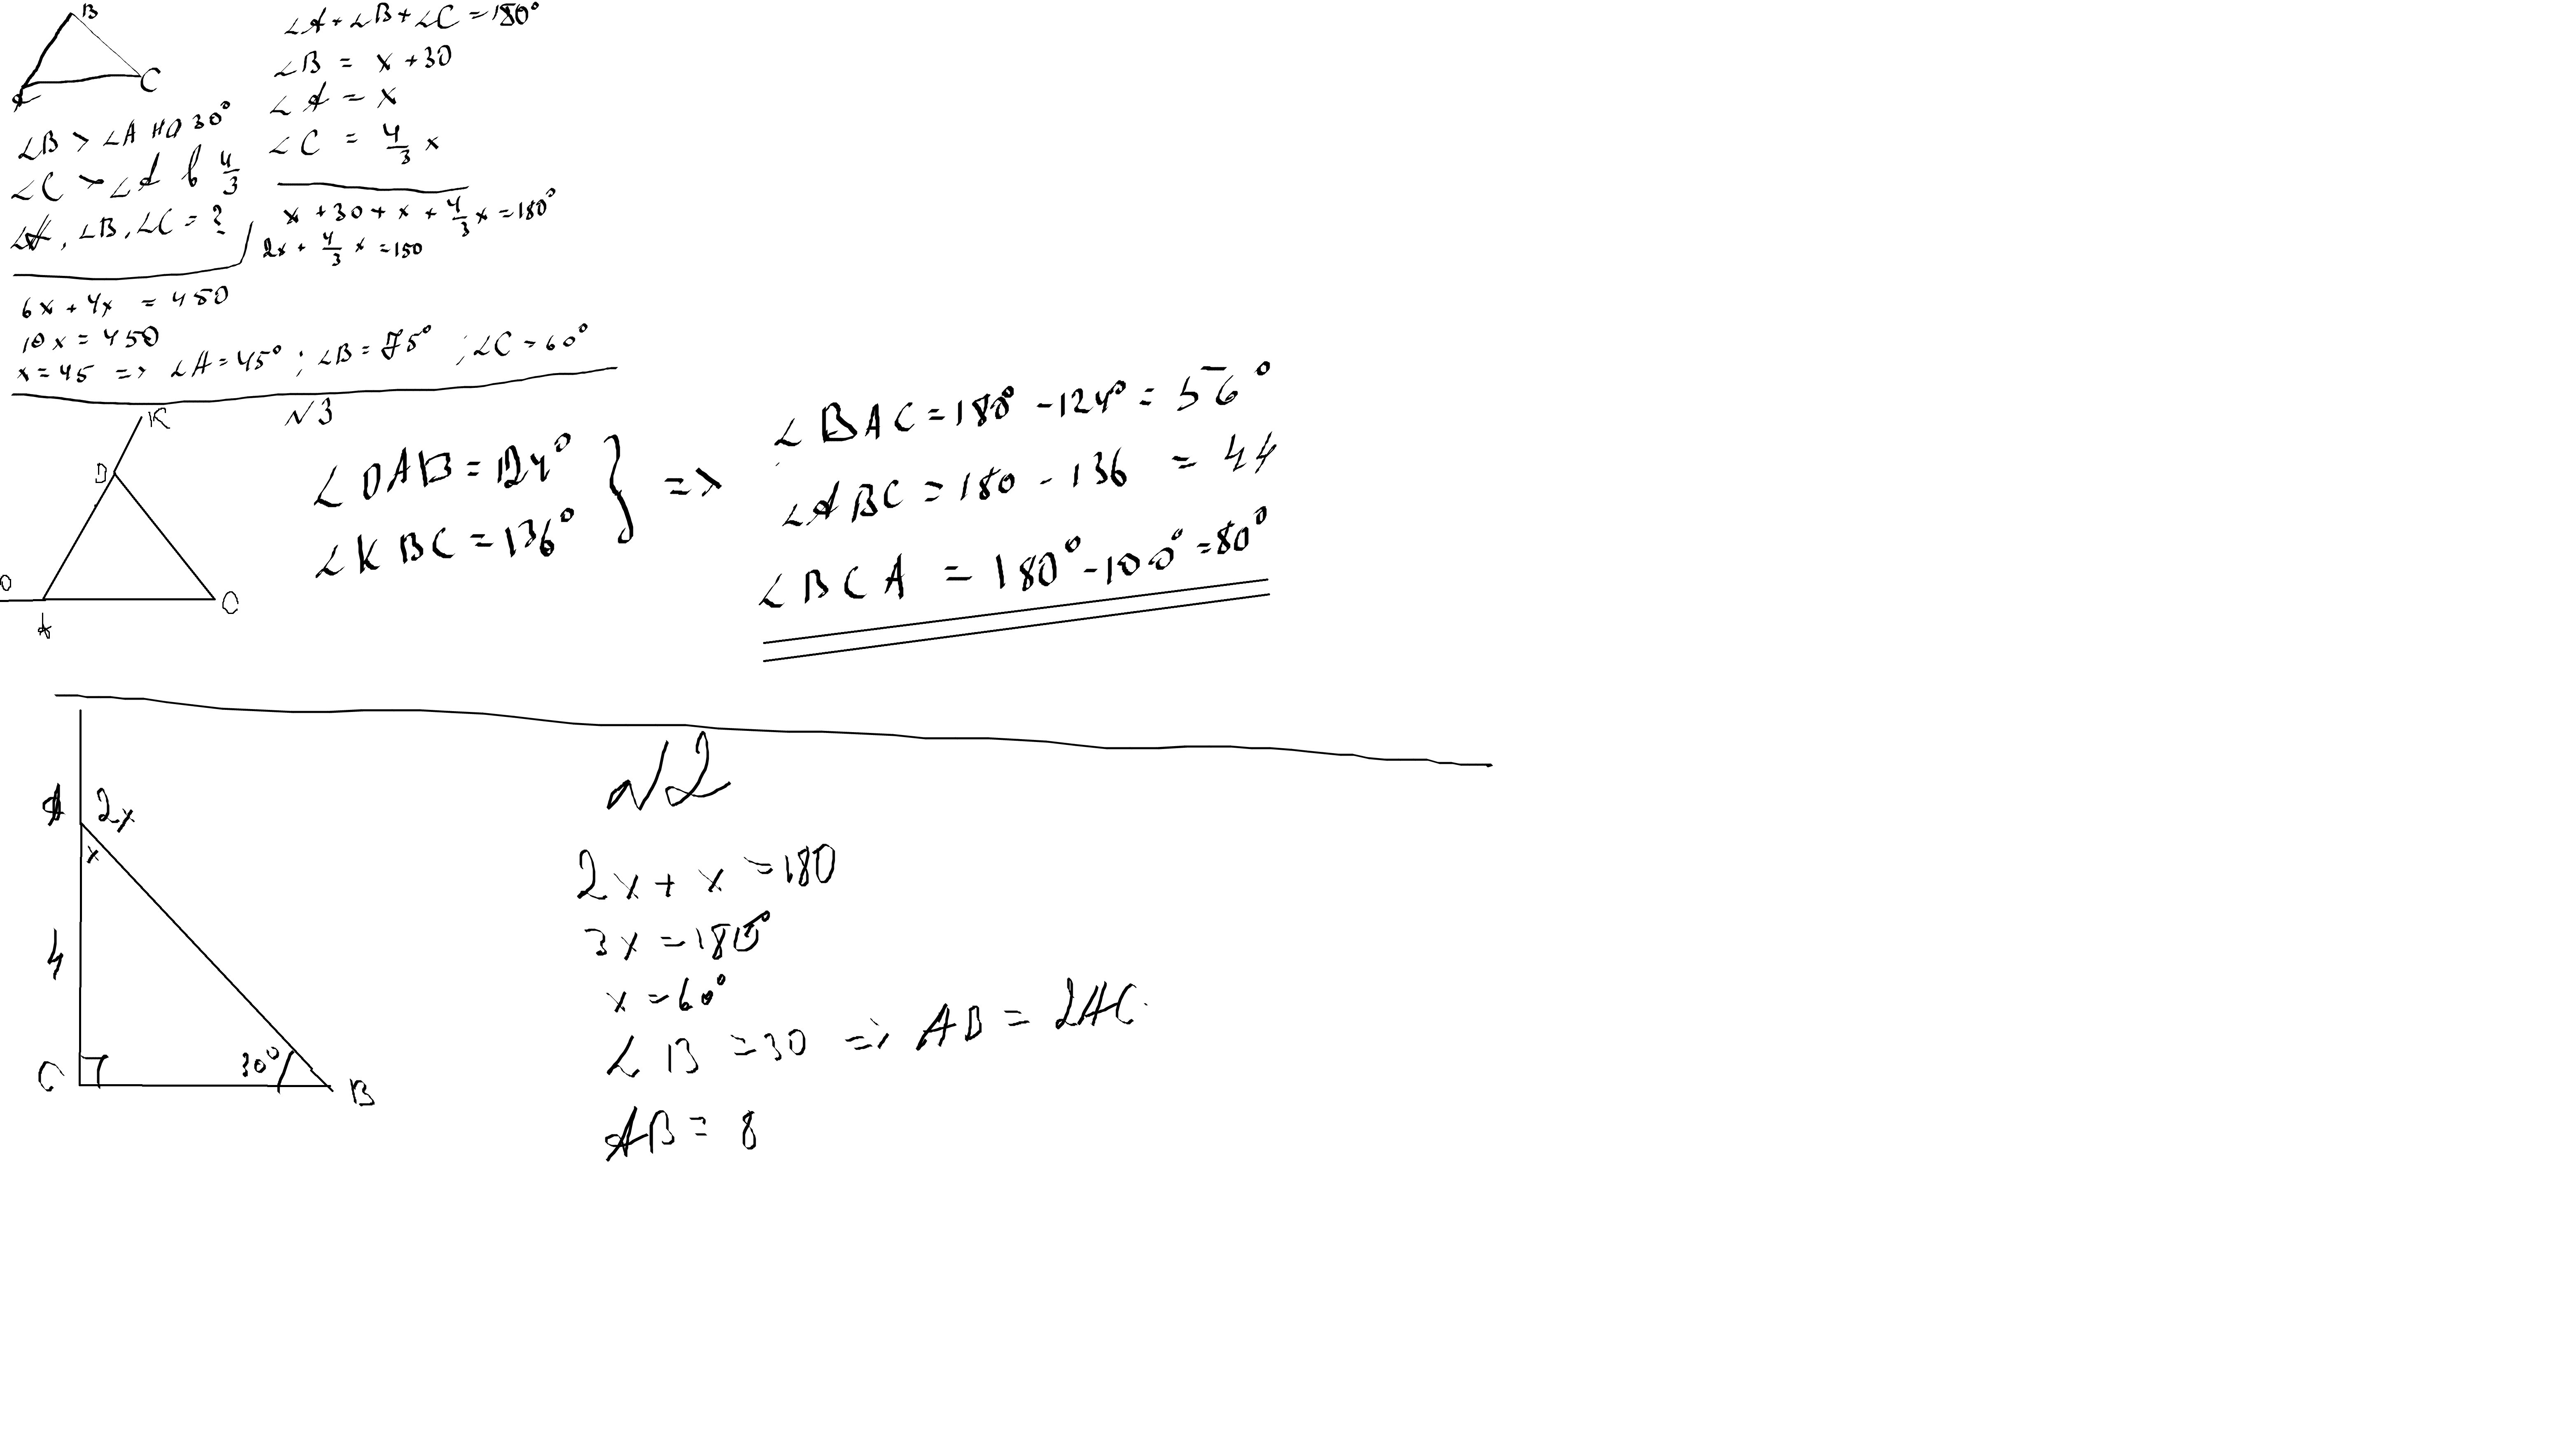 B
C
A
∠B > ∠A на 30°
∠C > ∠A в 4/3
∠A, ∠B, ∠C = ?
∠A + ∠B + ∠C = 180°
∠B = x + 30
∠A = x
∠C = 4/3 x
x + 30 + x + 4/3 x = 180°
2x + 4/3 x = 150
6x + 4x = 450
10x = 450
x = 45 => ∠A = 45° ; ∠B = 75° ; ∠C = 60°
N3
K
B
D
A
C
∠DAB = 124°
∠KBC = 136°
} =>
∠BAC = 180° - 124° = 56°
∠ABC = 180 - 136 = 44
∠BCA = 180° - 100° = 80°
N2
A 2x
x
4
C
30°
B
2x + x = 180
3x = 180°
x = 60°
∠B = 30 => AB = 2AC
AB = 8